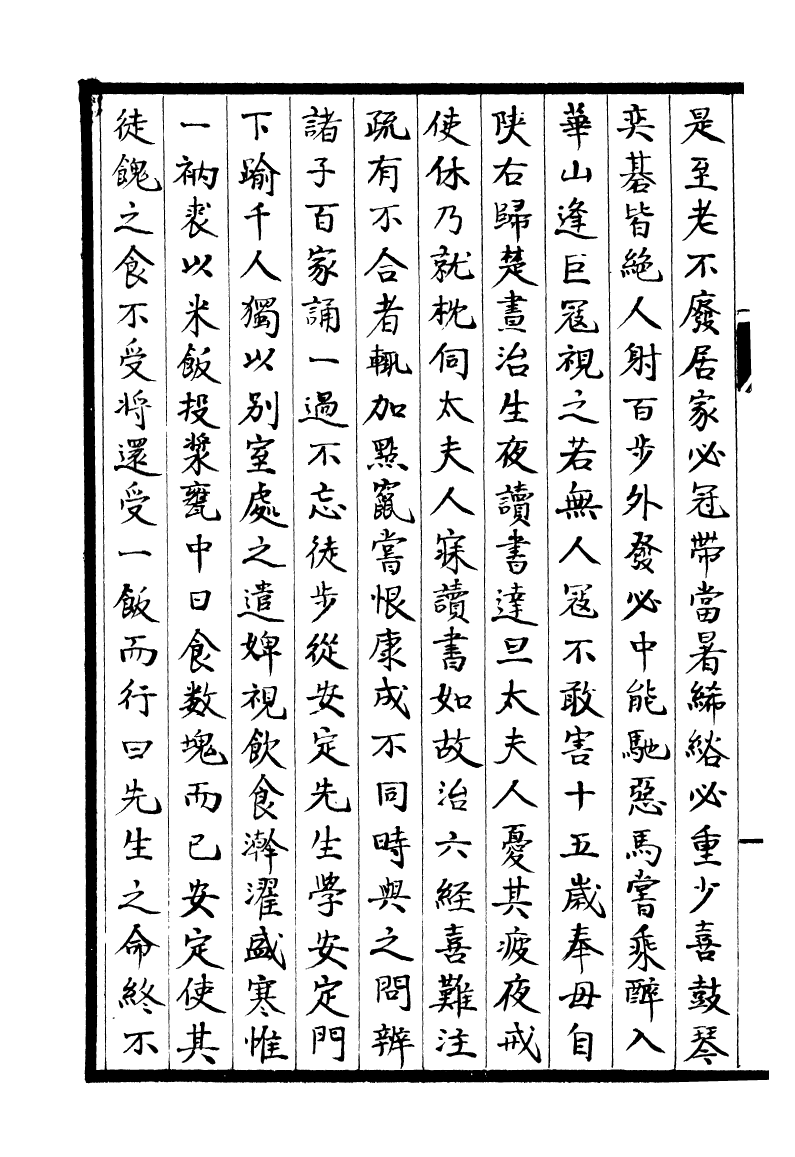 是至老不廢居家必冠帶當暑絺綌必重少喜鼓琴
奕棊皆絶人射百步外發必中能馳惡馬嘗乘醉入
華山逢巨寇視之若無人寇不敢害十五歲奉母自
陝右歸楚晝治生夜讀書達旦太夫人憂其疲夜戒
使休乃就枕伺太夫人寐讀書如故治六経喜難注
疏有不合者輒加點竄嘗恨康成不同時與之問辨
諸子百家誦一過不忘徒步從安定先生學安定門
下踰千人獨以別室處之遣婢視飲食澣濯盛寒惟
一衲裘以米飯投漿甕中日食数塊而已安定使其
徒餽之食不受将還受一飯而行曰先生之命終不